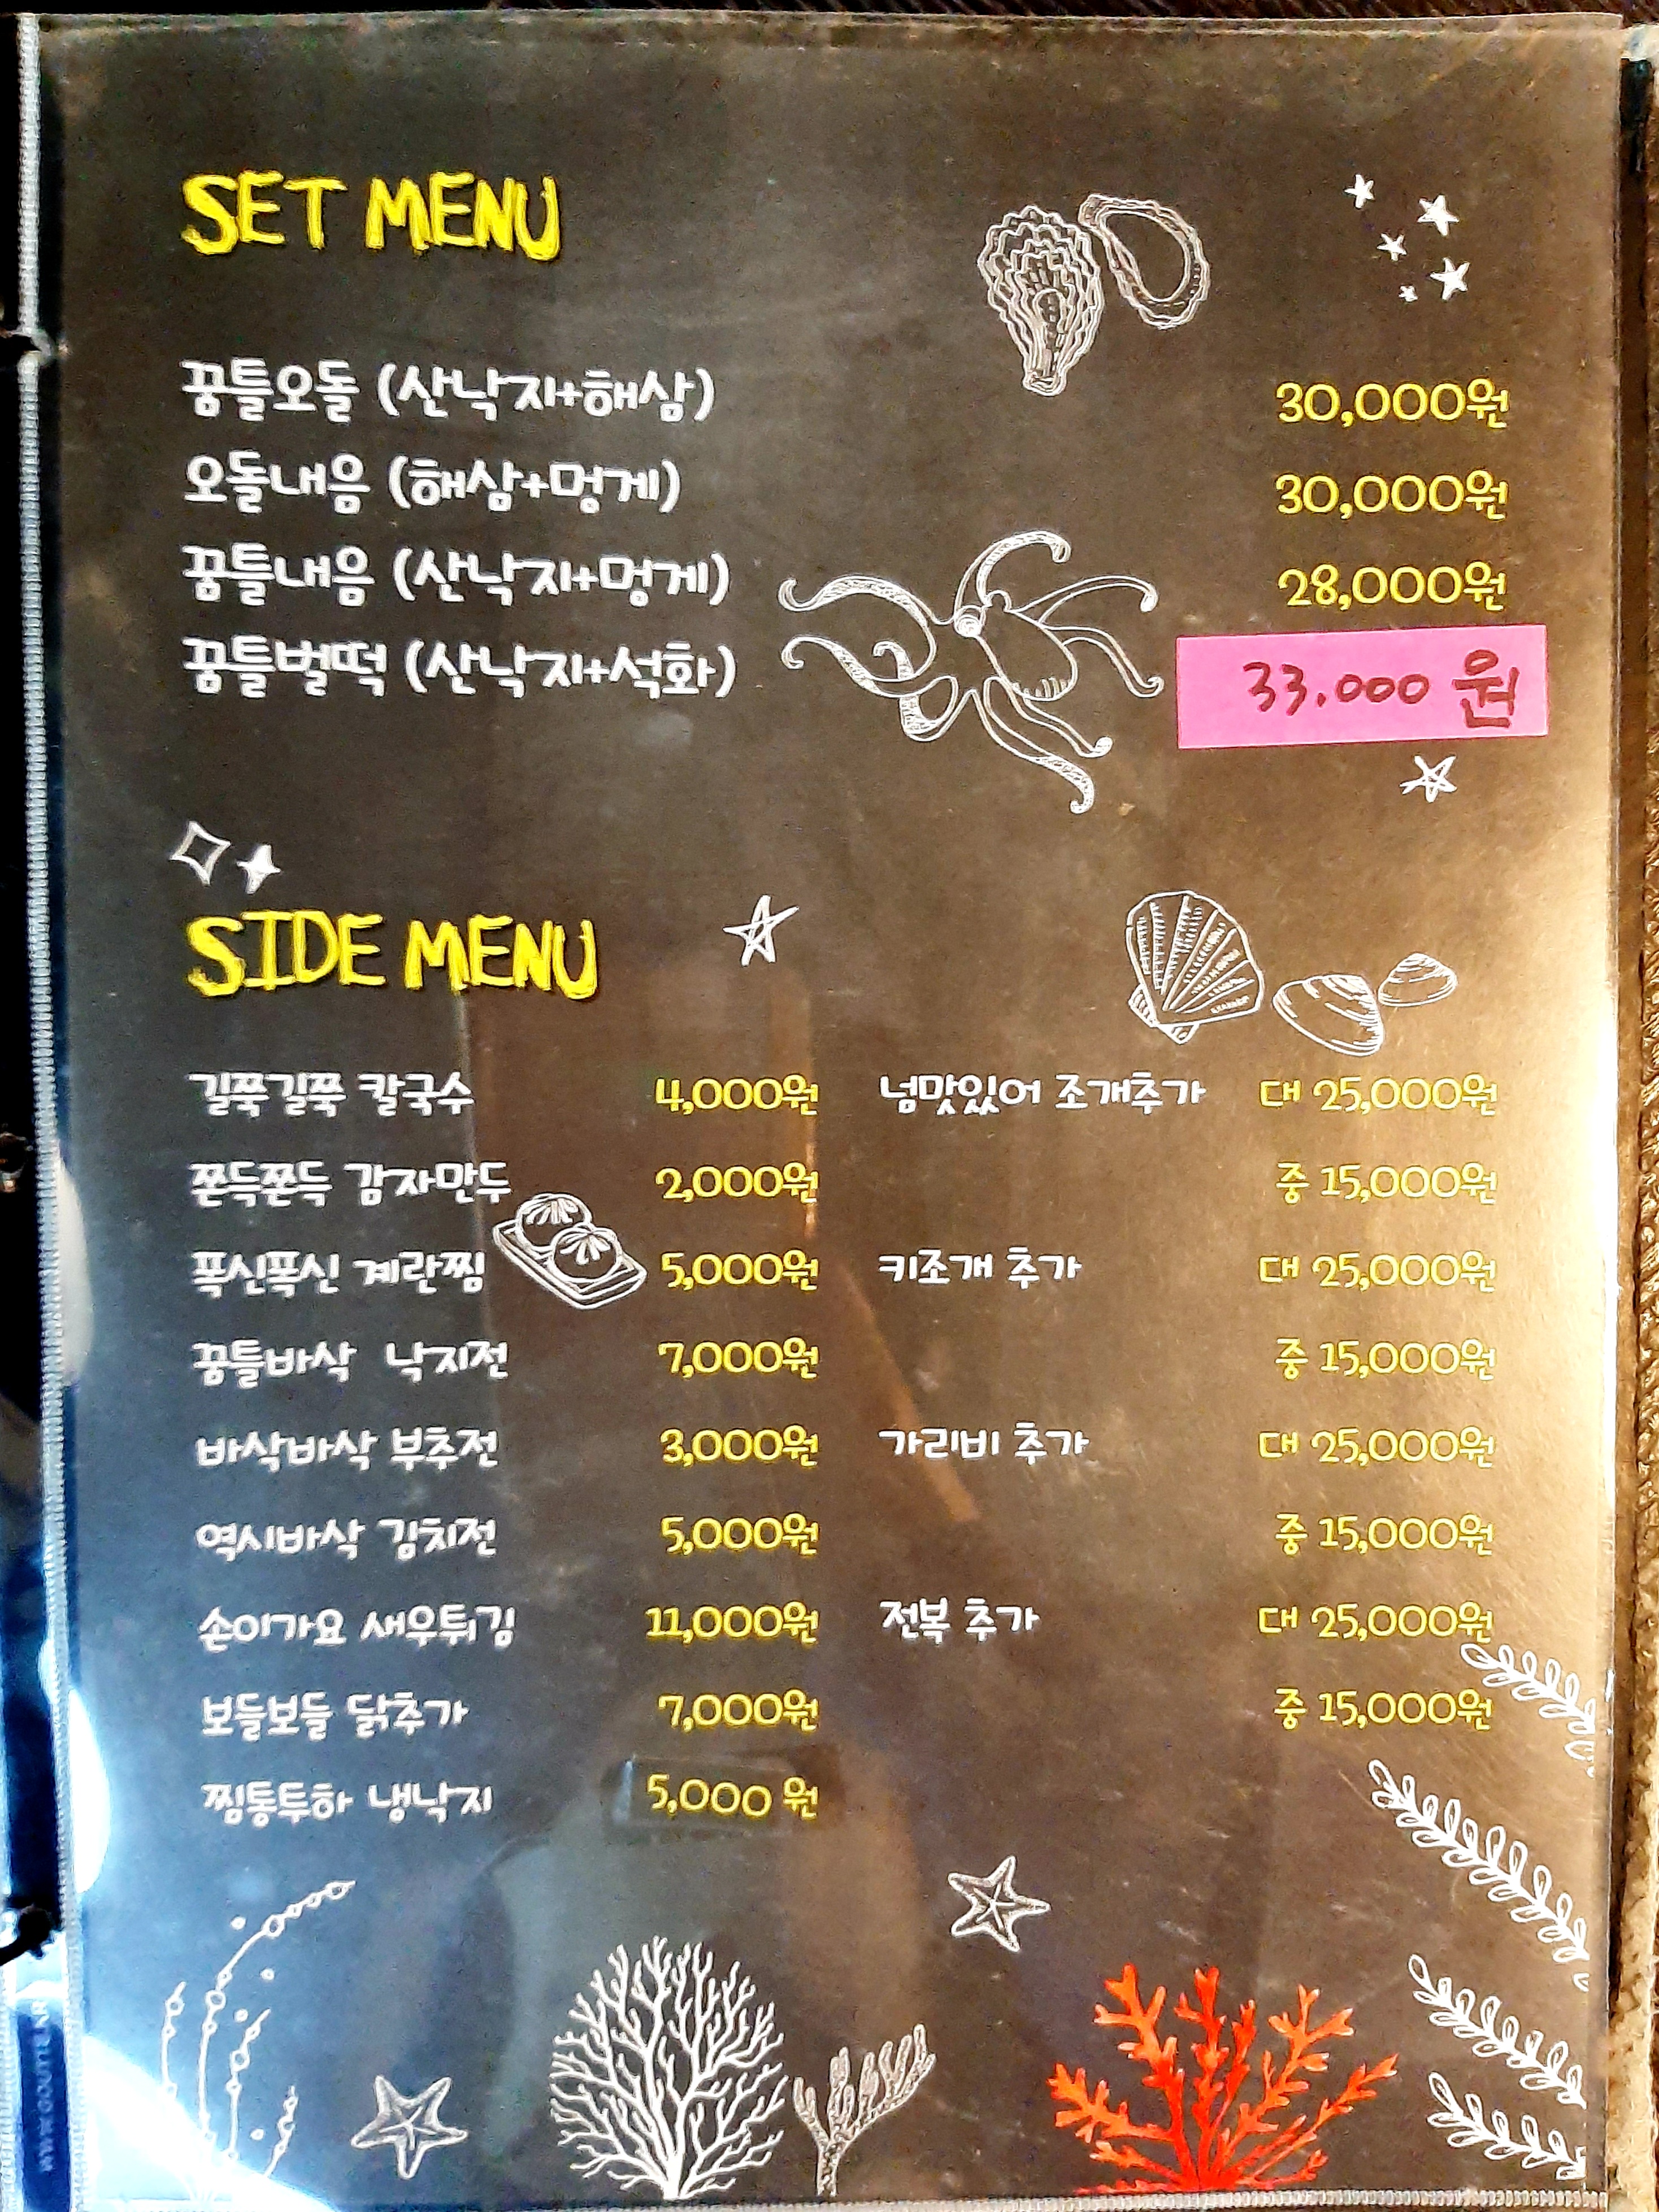 SET MENU
꿈틀오돌 (산낙지+해삼) 30,000원
오돌내음 (해삼+멍게) 30,000원
꿈틀내음 (산낙지+멍게) 28,000원
꿈틀벌떡 (산낙지+석화) 33.000 원
SIDE MENU
길쭉길쭉 칼국수 4,000원 넘맛있어 조개추가 대 25,000원
쫀득쫀득 감자만두 2,000원 중 15,000원
폭신폭신 계란찜 5,000원 키조개 추가 대 25,000원
꿈틀바삭 낙지전 7,000원 중 15,000원
바삭바삭 부추전 3,000원 가리비 추가 대 25,000원
역시바삭 김치전 5,000원 중 15,000원
손이가요 새우튀김 11,000원 전복 추가 대 25,000원
보들보들 닭추가 7,000원 중 15,000원
찜통투하 냉낙지 5,000 원